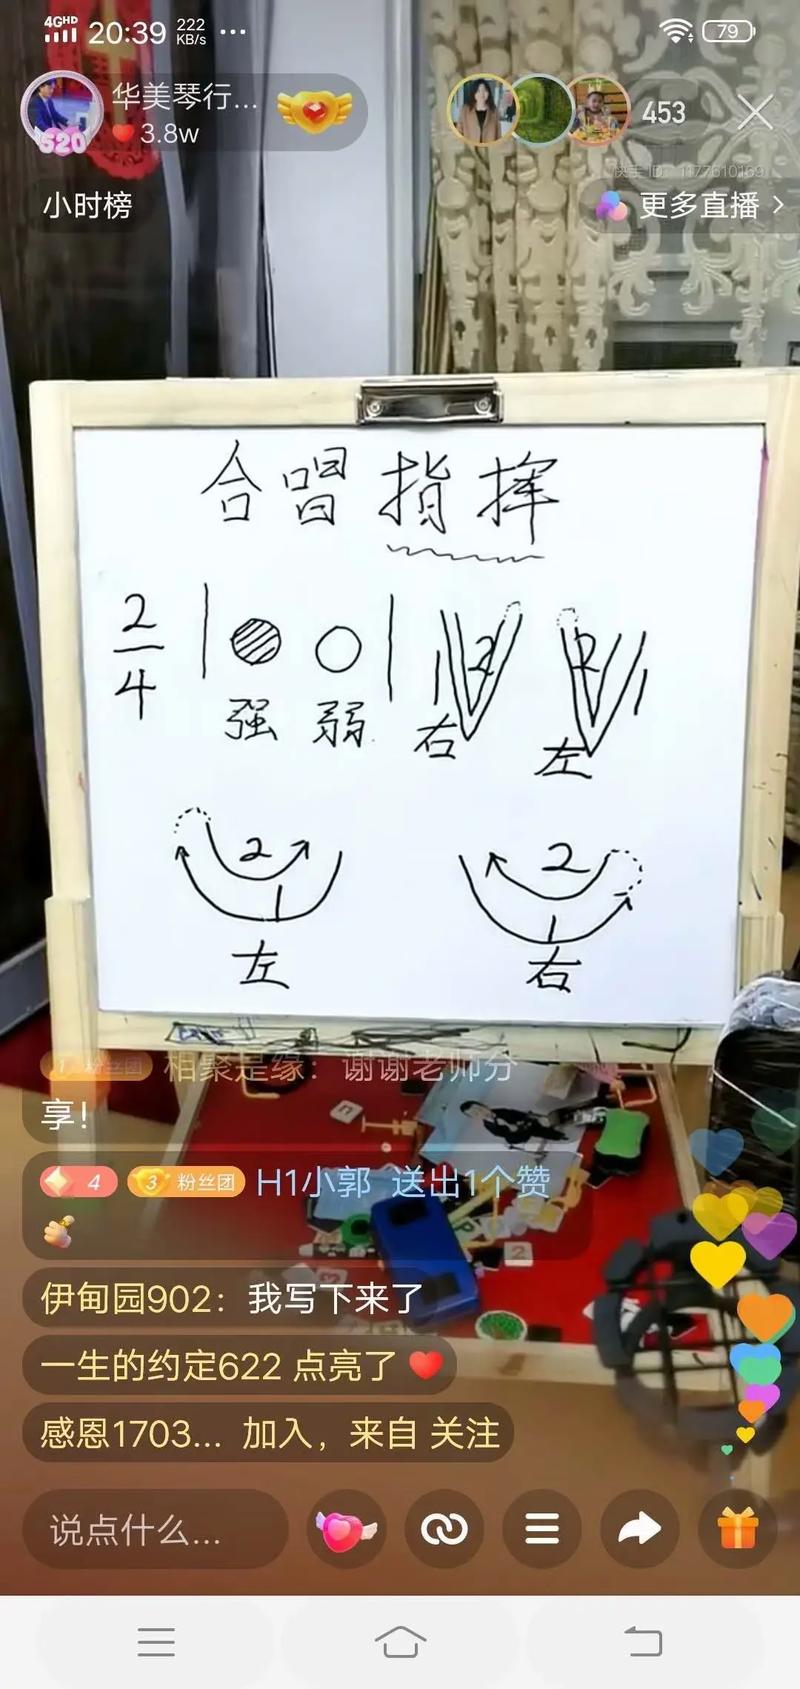 4GHD 20:39 222 KB/s ... 79
华美琴行...
520 3.8w
453
快手 ID: 1177610169
小时榜
更多直播
合唱指挥
2
4
强 弱
1 2 右
2 1 左
2
1
左
2
1
右
1 粉丝团 相聚是缘：谢谢老师分
享！
4 3 粉丝团 H1小郭 送出1个赞
伊甸园902：我写下来了
一生的约定622 点亮了
感恩1703... 加入，来自 关注
说点什么...